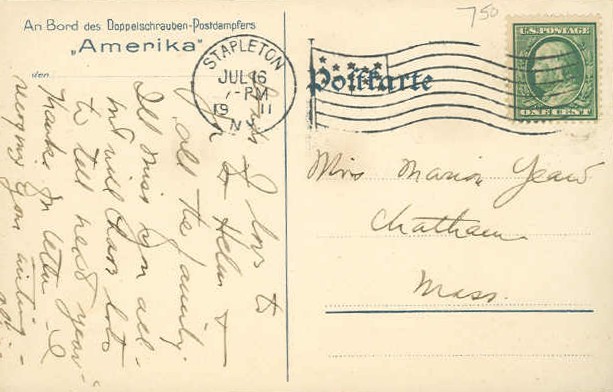 An Bord des Doppelschrauben-Postdampfers
„Amerika"
den
7 50
STAPLETON
JUL 16
7-PM
19 11
N.Y.
Postkarte
U.S. POSTAGE
ONE CENT
Miss Marion Yeaw
Chatham
Mass.
love to
you & Helen &
all the family.
I'll miss you all-
and will have lots
to tell next year-
Thanks for letter - I
enjoy your writing -